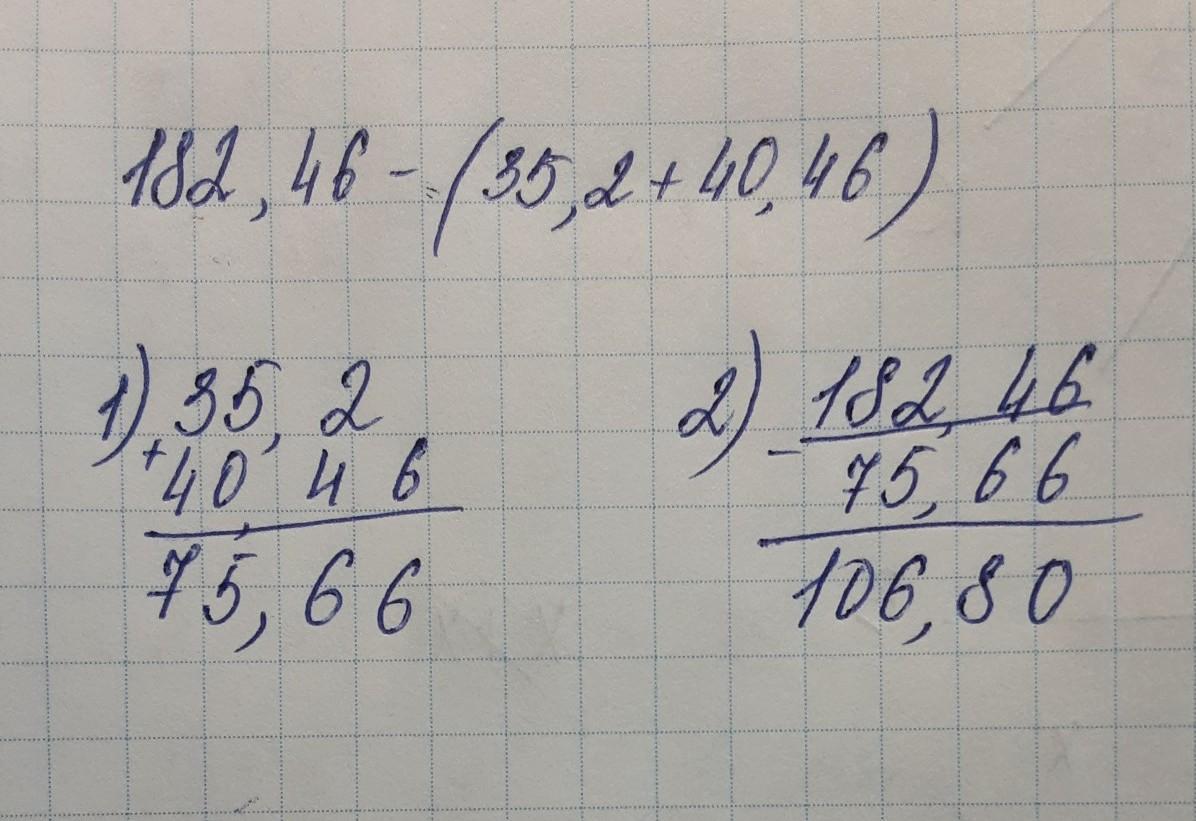 182,46-(35,2+40,46)
1) 35,2
+
40,46
75,66
2) 182,46
-
75,66
106,80